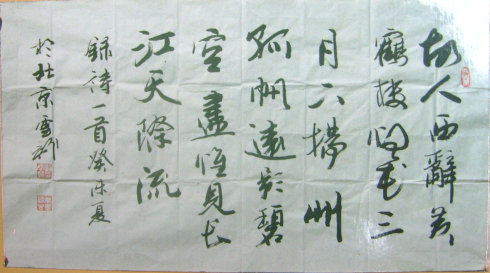 故人西辭黃
鶴樓烟花三
月下揚州
孤帆遠影碧
空盡惟見長
江天際流
錄詩一首癸未夏
於北京